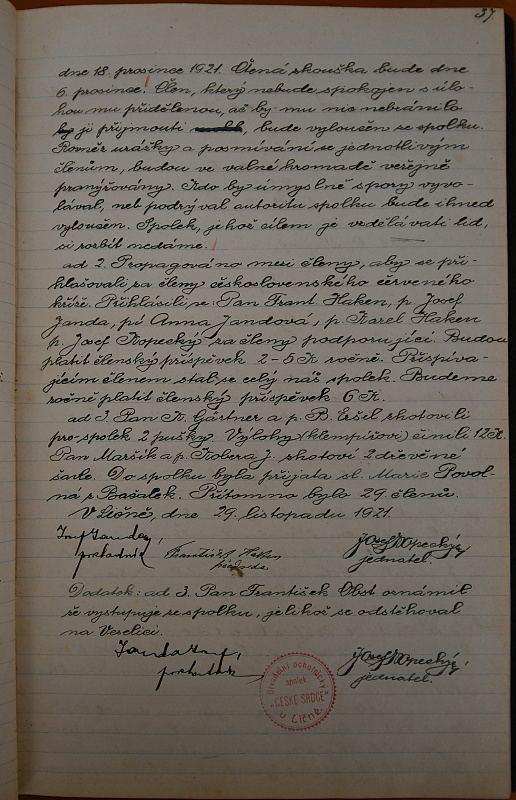 37.
dne 18. prosince 1921. Čtená zkouška bude dne
6. prosince. Člen, který nebude spokojen s úlo-
hou mu přidělenou, ač by mu nic nebránilo
ji přijmouti, bude vyloučen ze spolku.
Rovněž urážky a posmívání se jednotlivým
členům, budou ve valné hromadě veřejně
pranýřovány. Kdo by úmyslně spory vyvo-
lával, neb podrýval autoritu spolku bude ihned
vyloučen. Spolek, jehož cílem je vzdělávati lid,
si rozbít nedáme.
ad 2. Propagováno mezi členy, aby se při-
hlašovali za členy československého červeného
kříže. Přihlásili se: Pan Frant. Haken, p. Josef
Janda, pí Anna Jandová, p. Karel Haken
p. Josef Kopecký za členy podporující. Budou
platit členský příspěvek 2-5 K ročně. Přispíva-
jícím členem stal se celý náš spolek. Budeme
ročně platit členský příspěvek 6 K.
ad 3. Pan K. Gärtner a p. B. Eršil zhotovili
pro spolek 2 pušky. Výlohy (klempířovi) činili 12 K.
Pan Maršík a p. Kobera J. zhotoví 2 dřevěné
šavle. Do spolku byla přijata sl. Marie Povol-
ná z Bačalek. Přítomno bylo 29. členů.
V Ličně, dne 29. listopadu 1921.
Janda Josef Kopecký,
pokladník František Haken jednatel.
předseda
Dodatek: ad 3. Pan František Obst oznámil
že vystupuje ze spolku, jelikož se odstěhoval
na Veselici.
Janda Josef Kopecký,
pokladník jednatel.
Divadelní ochotnický
spolek
„ČESKÉ SRDCE"
v Ličně